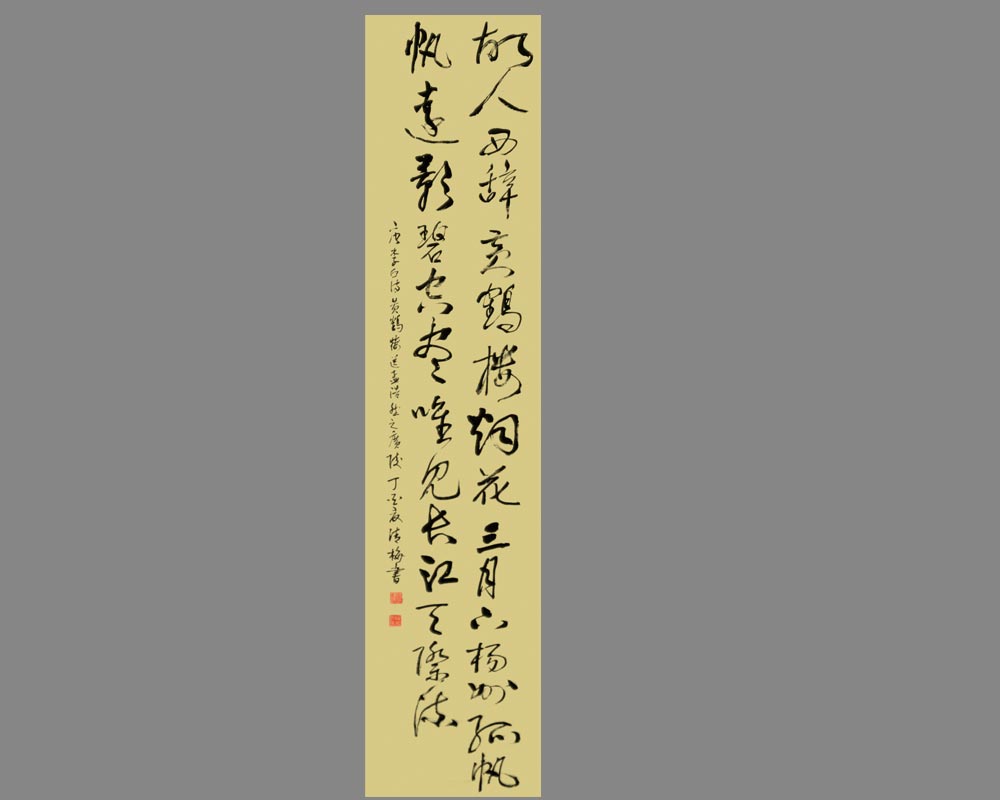 故人西辞黄鶴楼烟花三月下杨州孤帆
帆遠影碧空尽唯見长江天際流
唐李白诗黄鶴楼送孟浩然之廣陵 丁亥 清梅書